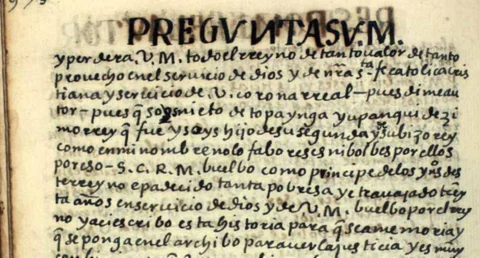 PREGVNTA SV. M.
y perdera. V. M. todo el rreyno de tanto ualor de tanto
prouecho en el seruicio de dios y de nra sta fe catolica cris
tiana y seruicio de V. corona rreal – pues dime au
tor – pues q̃ soys nieto de topa ynga yupanqui dezi
mo rrey q̃ fue y soys hijo de su segunda de su bizorrey
como en mi nonbre no lo faboreseys ni bolbes por ellos
por eso – S. C. R. M. buelbo como principe de los ynos des
te rreyno e padecido tanta pobresa y e trauajado treyn
ta años en seruicio de dios y de V. M. buelbo por el rrey
no y aci escribo esta historia para q̃ sea memoria y
q̃ se ponga en el archibo para uer la justicia y es muy